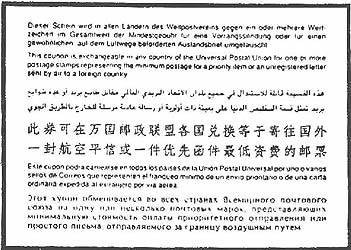 Dieser Schein wird in allen Ländern des Weltpostvereins gegen ein oder mehrere Wert-
zeichen im Gesamtwert der Mindestgebühr für eine Vorrangssendung oder für einen
gewöhnlichen auf dem Luftwege beförderten Auslandsbrief umgetauscht
This coupon is exchangeable in any country of the Universal Postal Union for one or more
postage stamps representing the minimum postage for a priority item or an unregistered letter
sent by air to a foreign country
هذه القسيمة قابلة للاستبدال في جميع بلدان الاتحاد البريدي العالمي مقابل طابع بريد أو عدة طوابع
بريد تمثل قيمة التخليص الدنيا على بعيثة ذات أولوية أو رسالة عادية مرسلة للخارج بالطريق الجوي
此券可在万国邮政联盟各国兑换等于寄往国外
一封航空平信或一件优先函件最低资费的邮票
Este cupón podrá canjearse en todos los países de la Unión Postal Universal por uno o varios
sellos de Correos que representen el franqueo mínimo de un envío prioritario o de una carta
ordinaria expedida al extranjero por vía aérea
Этот купон обменивается во всех странах Всемирного почтового
союза на одну или несколько почтовых марок, представляющих
минимальную стоимость оплаты приоритетного отправления или
простого письма, отправляемого за границу воздушным путем